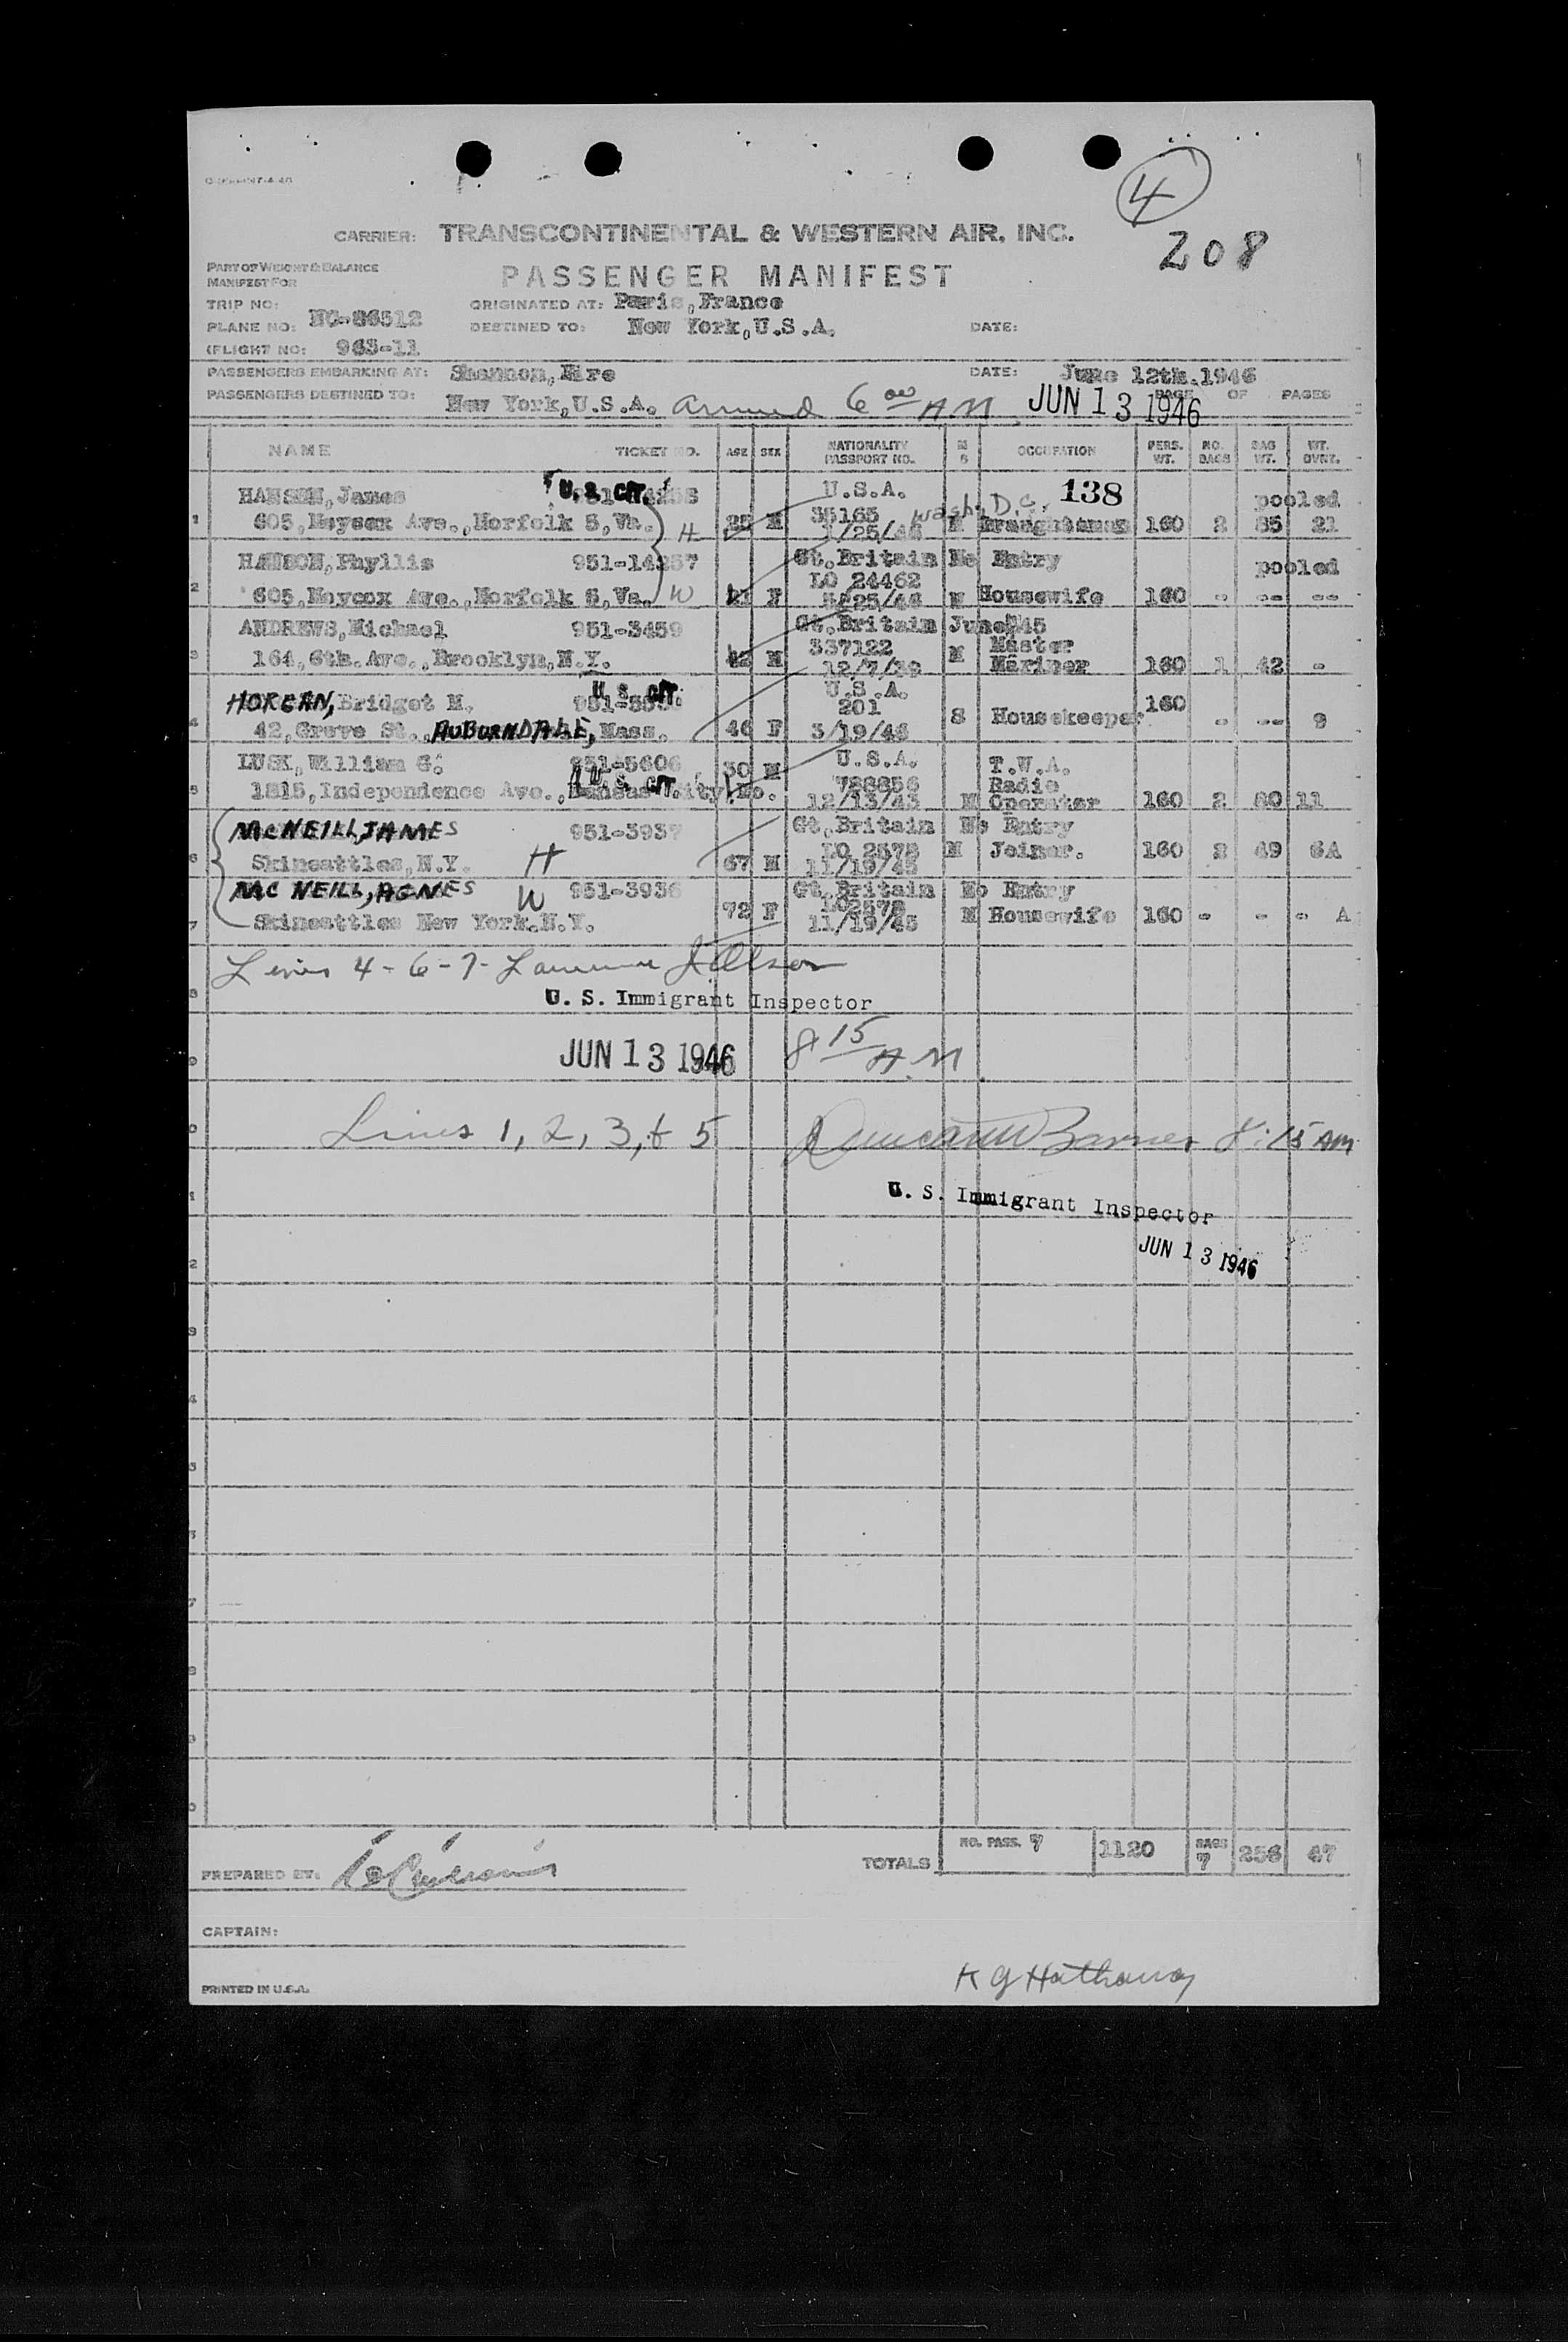 4
208
CARRIER: TRANSCONTINENTAL & WESTERN AIR, INC.
PART OF WEIGHT & BALANCE
MANIFEST FOR
PASSENGER MANIFEST
TRIP NO:
ORIGINATED AT: Paris, France
PLANE NO: NC-86512
DESTINED TO: New York, U.S.A.
DATE:
(FLIGHT NO: 963-11
PASSENGERS EMBARKING AT: Shannon, Eire
DATE: June 12th. 1946
PASSENGERS DESTINED TO: New York, U.S.A. arrived 6 00 AM JUN 13 1946
PAGE OF PAGES
NAME TICKET NO. AGE SEX NATIONALITY PASSPORT NO. M S OCCUPATION PERS. WT. NO. BAGS BAG WT. WT. OVNT.
HANSON, James U.S. CIT. U.S.A. 138 pooled
1 605, Ave., Norfolk 5, Va. H 25 M 35165 Wash, D.C. M Draughtsman 160 2 85 21
HANSON, Phyllis 951-14257 Gt. Britain No Entry pooled
LO 24462
2 605, Ave., Norfolk 5, Va. W 21 F M Housewife 160 - -- --
ANDREWS, Michael 951-3459 Gt. Britain June 45
337122 Master
3 164, 6th. Ave., Brooklyn, N.Y. 42 M 12/7/39 M Mariner 160 1 42 -
HOREAN, Bridget M. U.S. CIT. U.S.A.
201 160
4 42, Grove St., AUBURNDALE, Mass. 46 F 3/19/46 S Housekeeper - -- 9
LUSK, William G. 951-5606 30 M U.S.A. T.W.A.
U.S. CIT. Radio
5 1815, Independence Ave., Kansas City, Mo. 12/13/45 M Operator 160 2 80 11
MCNEILL, JAMES 951-3937 Gt. Britain No Entry
6 N.Y. H 67 M LO 2578 11/19/45 M Joiner. 160 2 49 6A
MC NEILL, AGNES W 951-3936 Gt. Britain No Entry
7 New York. N.Y. 72 F LO2578 11/19/45 M Housewife 160 - - - A
Lines 4-6-7- Olson
U. S. Immigrant Inspector
JUN 13 1946 8 15 A.M
Lines 1, 2, 3, & 5 8:15 AM
U. S. Immigrant Inspector
JUN 13 1946
TOTALS NO. PASS. 7 1120 BAGS 7 256 47
PREPARED BY:
CAPTAIN:
K G Hathaway
PRINTED IN U.S.A.